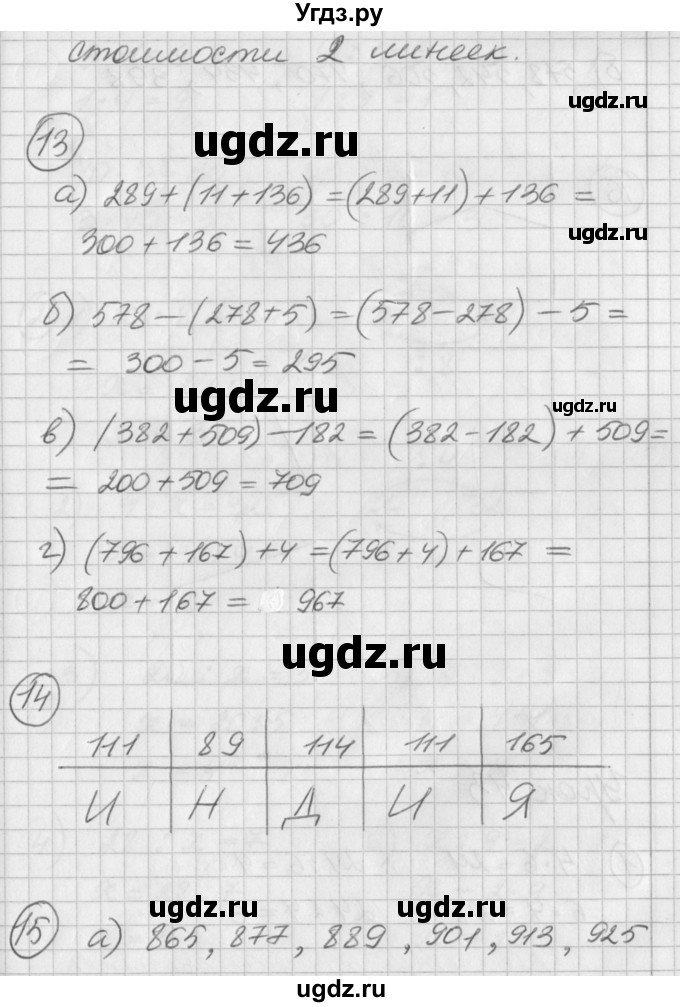 Угдз.ру
стоимости 2 линеек.
ugdz.ru
13
ugdz.ru
а) 289+(11+136) =(289+11)+136 =
ugdz.ru
300+136=436
б) 578-(278+5) =(578-278)-5=
= 300-5=295
ugdz.ru
ugdz.ru
в) (382+509)-182=(382-182)+509=
= 200+509=709
г) (796+167)+4=(796+4)+167 =
800+167= 967
ugdz.ru
14
111 89 114 111 165
И Н Д И Я
ugdz.ru ugdz.ru
15 а) 865, 877, 889, 901, 913, 925
Угдз.ру